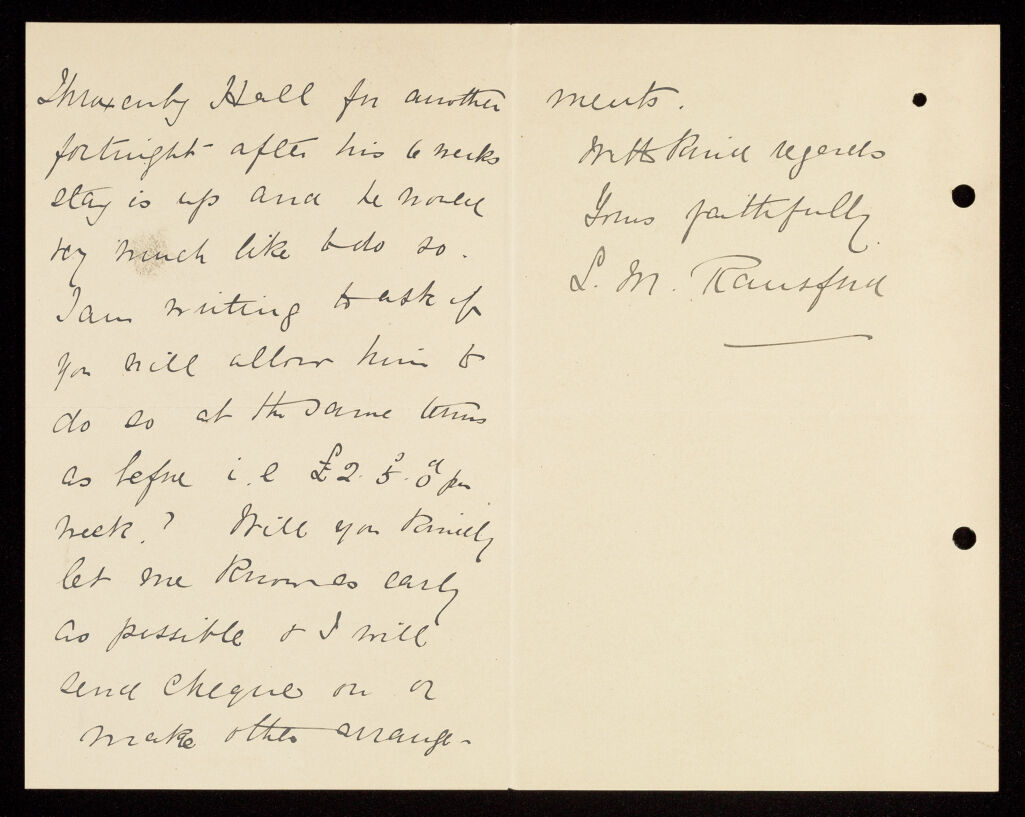 Throxenby Hall for another
fortnight after his 6 weeks
stay is up and he would
very much like to do so.
I am writing to ask if
you will allow him to
do so at the same terms
as before i.e £2. 5s. 0d per
week? Will you kindly
let me know as early
as possible & I will
send cheque on or
make other arrange-
ments.
With kind regards
Yours faithfully
L. M. Ransford